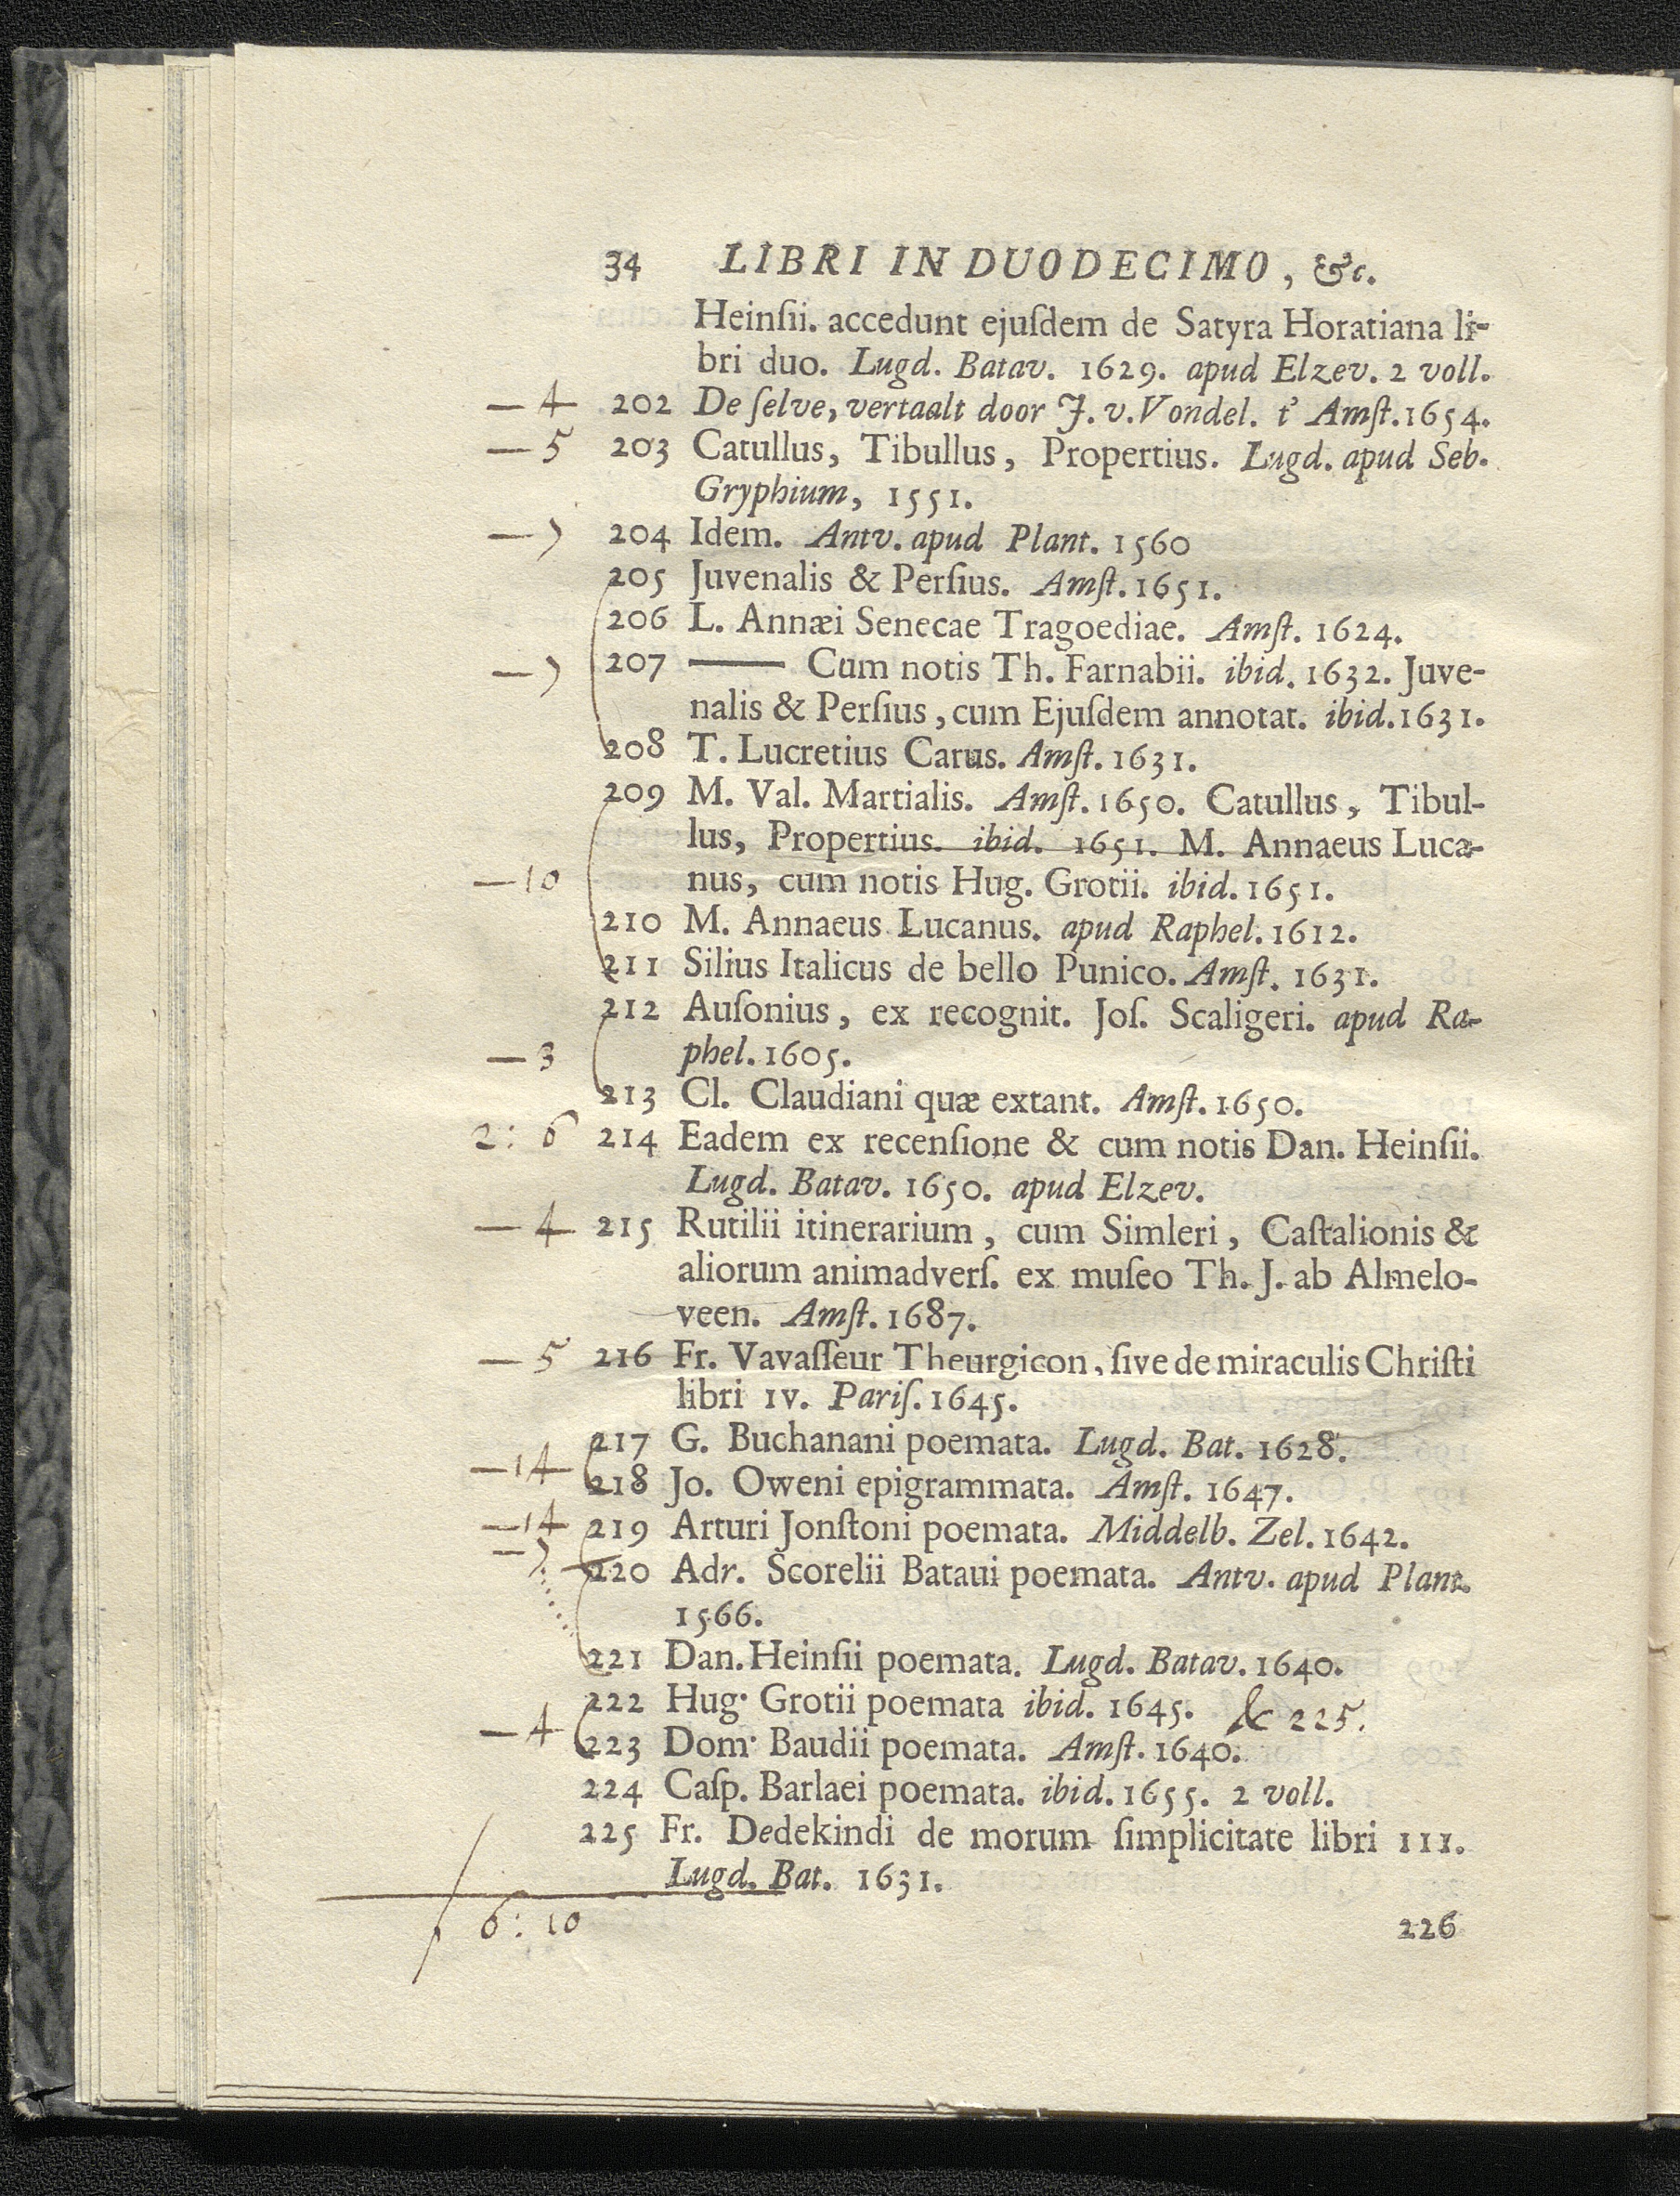 34 LIBRI IN DUODECIMO, &c.
Heinſii. accedunt ejuſdem de Satyra Horatiana li-
bri duo. Lugd. Batav. 1629. apud Elzev. 2 voll.
— 4 202 De ſelve, vertaalt door J. v. Vondel. t' Amſt. 1654.
— 5 203 Catullus, Tibullus, Propertius. Lugd. apud Seb.
Gryphium, 1551.
— 204 Idem. Antv. apud Plant. 1560
205 Juvenalis & Perſius. Amſt. 1651.
206 L. Annæi Senecae Tragoediae. Amſt. 1624.
— 207 —— Cum notis Th. Farnabii. ibid. 1632. Juve-
nalis & Perſius, cum Ejuſdem annotat. ibid. 1631.
208 T. Lucretius Carus. Amſt. 1631.
209 M. Val. Martialis. Amſt. 1650. Catullus, Tibul-
lus, Propertius. ibid. 1651. M. Annaeus Luca-
— 10 nus, cum notis Hug. Grotii. ibid. 1651.
210 M. Annaeus Lucanus. apud Raphel. 1612.
211 Silius Italicus de bello Punico. Amſt. 1631.
212 Auſonius, ex recognit. Joſ. Scaligeri. apud Ra-
— 3 phel. 1605.
213 Cl. Claudiani quæ extant. Amſt. 1650.
2: 6 214 Eadem ex recenſione & cum notis Dan. Heinſii.
Lugd. Batav. 1650. apud Elzev.
— 4 215 Rutilii itinerarium, cum Simleri, Caſtalionis &
aliorum animadverſ. ex muſeo Th. J. ab Almelo-
veen. Amſt. 1687.
— 5 216 Fr. Vavaſſeur Theurgicon, ſive de miraculis Chriſti
libri IV. Pariſ. 1645.
217 G. Buchanani poemata. Lugd. Bat. 1628.
— 14 218 Jo. Oweni epigrammata. Amſt. 1647.
— 14 219 Arturi Jonſtoni poemata. Middelb. Zel. 1642.
— 220 Adr. Scorelii Bataui poemata. Antv. apud Plant.
1566.
221 Dan. Heinſii poemata. Lugd. Batav. 1640.
222 Hug. Grotii poemata ibid. 1645. & 225.
— 4 223 Dom. Baudii poemata. Amſt. 1640.
224 Caſp. Barlaei poemata. ibid. 1655. 2 voll.
225 Fr. Dedekindi de morum ſimplicitate libri III.
Lugd. Bat. 1631.
6: 10 226